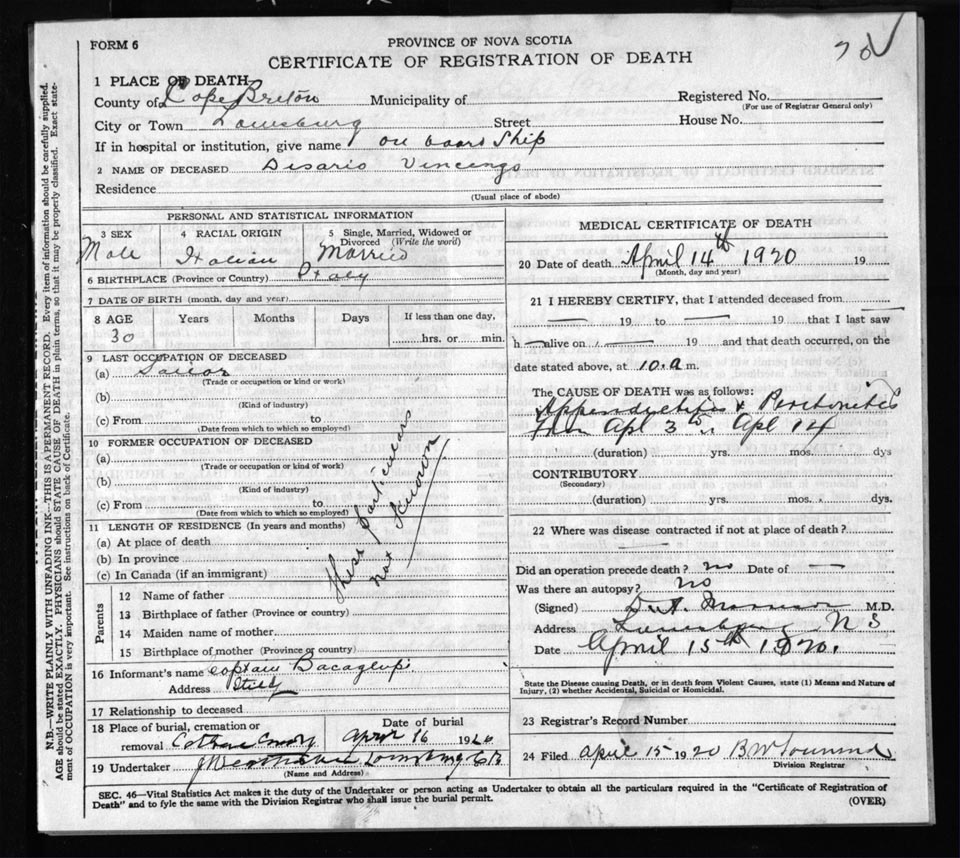 70
FORM 6
PROVINCE OF NOVA SCOTIA
CERTIFICATE OF REGISTRATION OF DEATH
1 PLACE OF DEATH
County of Cape Breton Municipality of Registered No.
(For use of Registrar General only)
City or Town Louisburg Street House No.
If in hospital or institution, give name on board Ship
2 NAME OF DECEASED Disario Vincengo
Residence
(Usual place of abode)
PERSONAL AND STATISTICAL INFORMATION
3 SEX 4 RACIAL ORIGIN 5 Single, Married, Widowed or Divorced (Write the word)
Male Italian Married
6 BIRTHPLACE (Province or Country) Italy
7 DATE OF BIRTH (month, day and year)
8 AGE Years Months Days If less than one day,
30 hrs. or min.
9 LAST OCCUPATION OF DECEASED
(a) Sailor
(Trade or occupation or kind or work)
(b)
(Kind of industry)
(c) From to
(Date from which to which so employed)
10 FORMER OCCUPATION OF DECEASED
(a)
(Trade or occupation or kind of work)
(b)
(Kind of industry)
(c) From to
(Date from which to which so employed)
11 LENGTH OF RESIDENCE (In years and months)
(a) At place of death
(b) In province
(c) In Canada (if an immigrant)
These particulars
not Known
Parents
12 Name of father
13 Birthplace of father (Province or country)
14 Maiden name of mother
15 Birthplace of mother (Province or country)
16 Informant's name Captain
Address Italy
17 Relationship to deceased
18 Place of burial, cremation or Date of burial
removal April 16 1920
19 Undertaker Louisburg C B
(Name and Address)
MEDICAL CERTIFICATE OF DEATH
20 Date of death April 14th 1920 19
(Month, day and year)
21 I HEREBY CERTIFY, that I attended deceased from
— 19 to — 19 that I last saw
h — alive on — 19 and that death occurred, on the
date stated above, at 10.a m.
The CAUSE OF DEATH was as follows:
Appendicitis & Peritonitis
from Apl 3rd to Apl 14
(duration) yrs. mos. dys
CONTRIBUTORY
(Secondary)
(duration) yrs. mos. dys.
22 Where was disease contracted if not at place of death?
—
Did an operation precede death? no Date of —
Was there an autopsy? no
(Signed) M.D.
Address Louisburg N S
Date April 15th 1920.
State the Disease causing Death, or in death from Violent Causes, state (1) Means and Nature of
Injury, (2) whether Accidental, Suicidal or Homicidal.
23 Registrar's Record Number
24 Filed April 15 1920 B W Townsend
Division Registrar
SEC. 46—Vital Statistics Act makes it the duty of the Undertaker or person acting as Undertaker to obtain all the particulars required in the "Certificate of Registration of
Death" and to fyle the same with the Division Registrar who shall issue the burial permit.
(OVER)
N.B.—WRITE PLAINLY WITH UNFADING INK—THIS IS A PERMANENT RECORD. Every item of information should be carefully supplied.
AGE should be stated EXACTLY. PHYSICIANS should STATE CAUSE OF DEATH in plain terms, so that it may be properly classified. Exact state-
ment of OCCUPATION is very important. See instructions on back of Certificate.